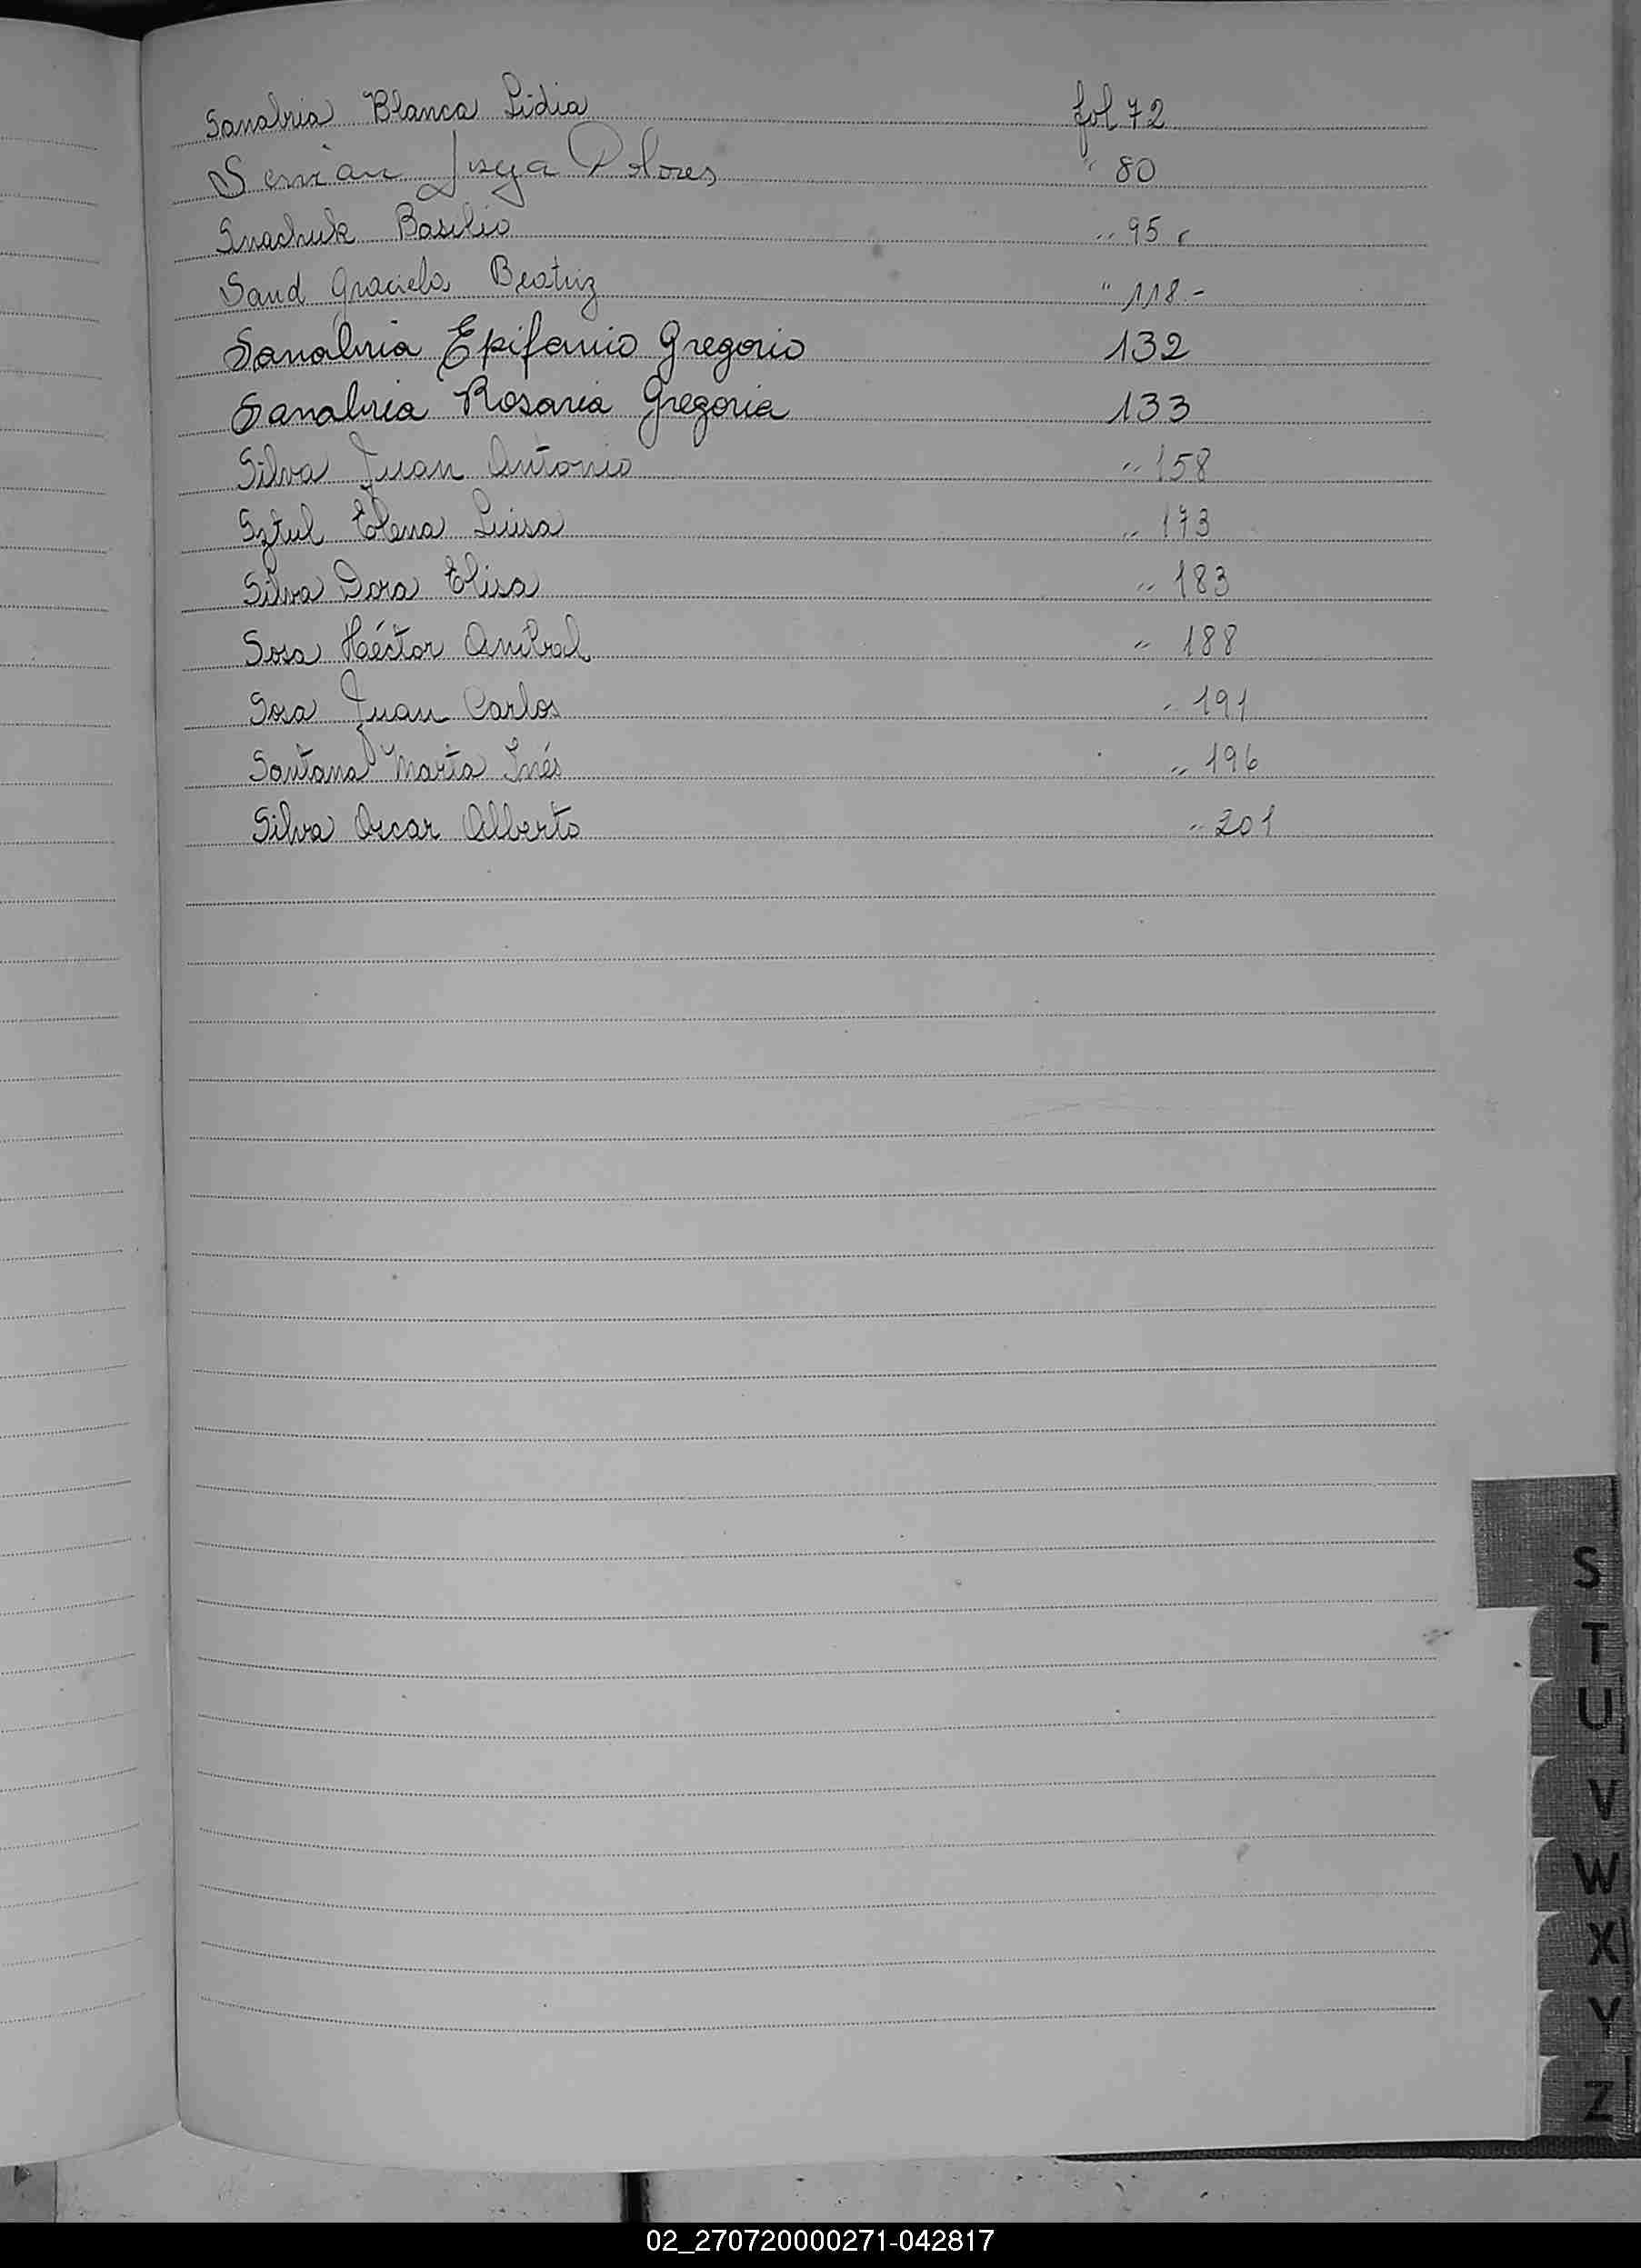 Sanabria Blanca Lidia fol 72
Servian Josefa Dolores " 80
Snachuk Basilio " 95
Saud Graciela Beatriz " 118 -
Sanabria Epifanio Gregorio 132
Sanabria Rosaria Gregoria 133
Silva Juan Antonio " 158
Sztul Elena Luisa " 173
Silva Dora Elisa " 183
Sosa Héctor Anibal " 188
Sosa Juan Carlos " 191
Santana Marta Inés " 196
Silva Oscar Alberto " 201
S
T
U
V
W
X
Y
Z
02_270720000271-042817